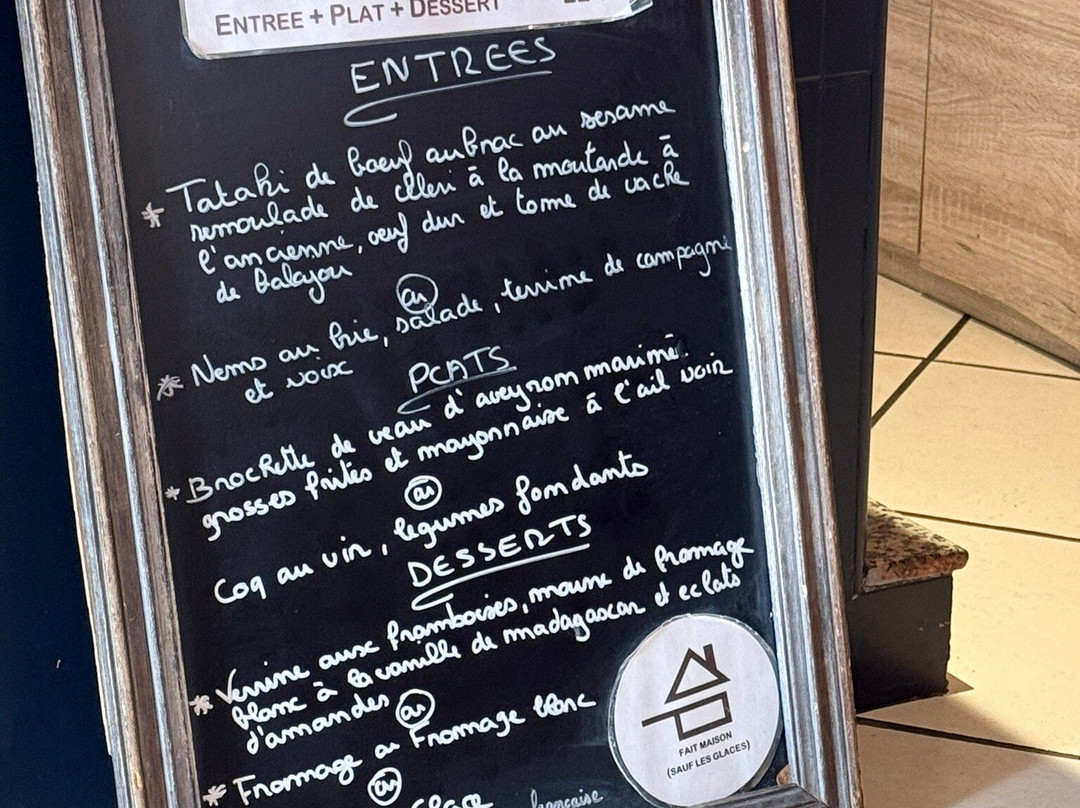 ENTREE + PLAT + DESSERT
ENTREES
* Tataki de boeuf aubrac au sesame
remoulade de céleri à la moutarde à
l'ancienne, oeuf dur et tome de vache
de balajou
ou
* Nems au brie, salade, terrine de campagne
et noix
PLATS
* Brochette de veau d'aveyron mariné.
grosses frites et mayonnaise à l'ail noir
ou
Coq au vin, legumes fondants
DESSERTS
* Verrine aux framboises, mousse de fromage
blanc à la vanille de madagascar et eclats
d'amandes
ou
* Fromage ou Fromage blanc
ou
Glace française
FAIT MAISON
(SAUF LES GLACES)